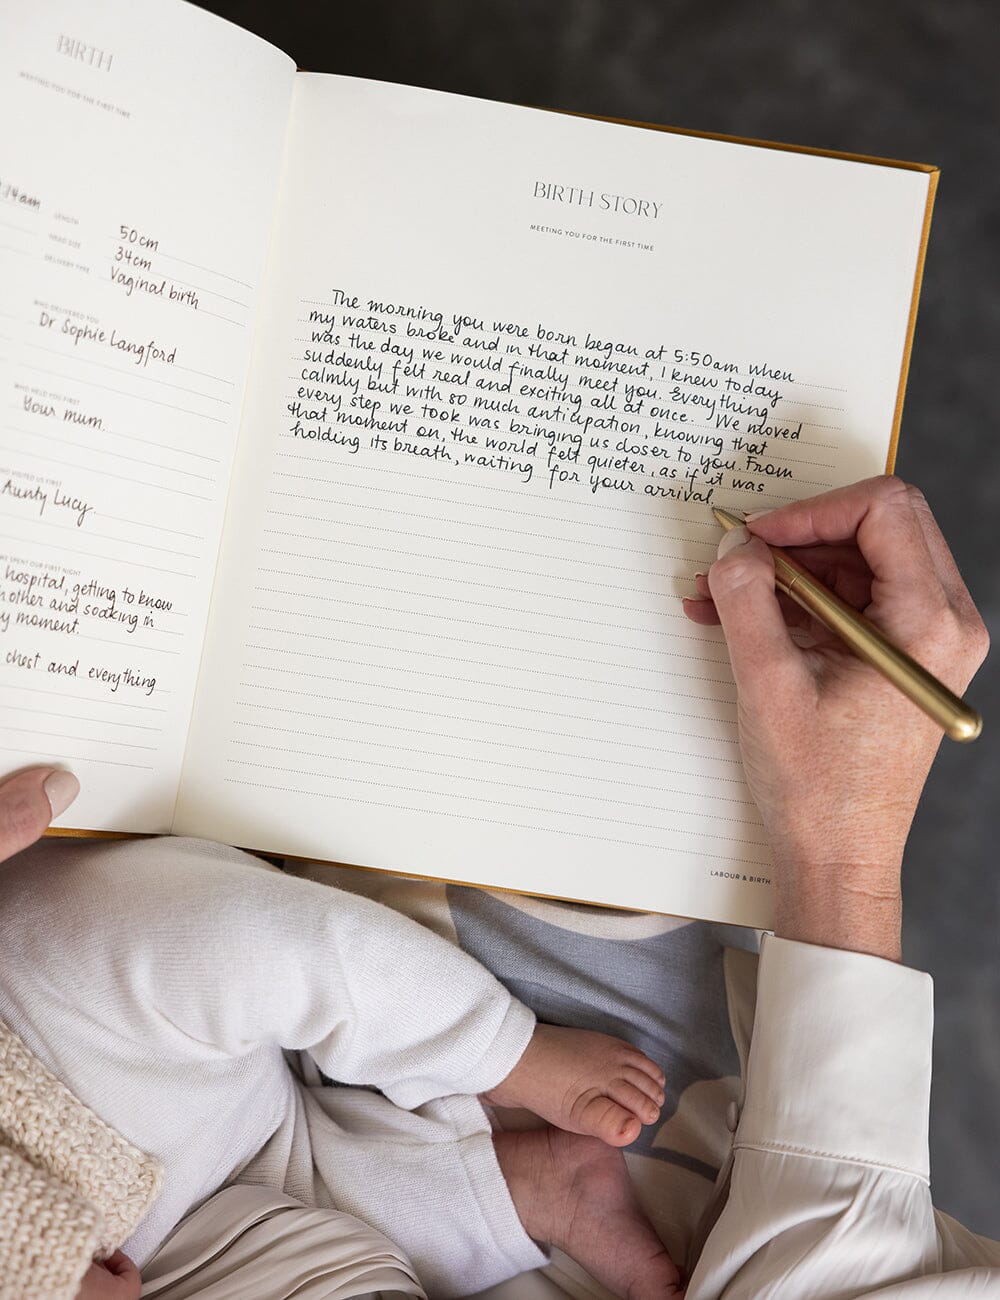 BIRTH
MEETING YOU FOR THE FIRST TIME
14am
LENGTH
50cm
HEAD SIZE
34cm
DELIVERY TYPE
Vaginal birth
WHO DELIVERED YOU
Dr Sophie Langford
WHO HELD YOU FIRST
Your mum.
VISITED US FIRST
Aunty Lucy.
WE SPENT OUR FIRST NIGHT
hospital, getting to know
other and soaking in
y moment.
chest and everything
BIRTH STORY
MEETING YOU FOR THE FIRST TIME
The morning you were born began at 5:50am when
my waters broke and in that moment, I knew today
was the day we would finally meet you. Everything
suddenly felt real and exciting all at once. We moved
calmly but with so much anticipation, knowing that
every step we took was bringing us closer to you. From
that moment on, the world felt quieter, as if it was
holding its breath, waiting for your arrival.
LABOUR & BIRTH